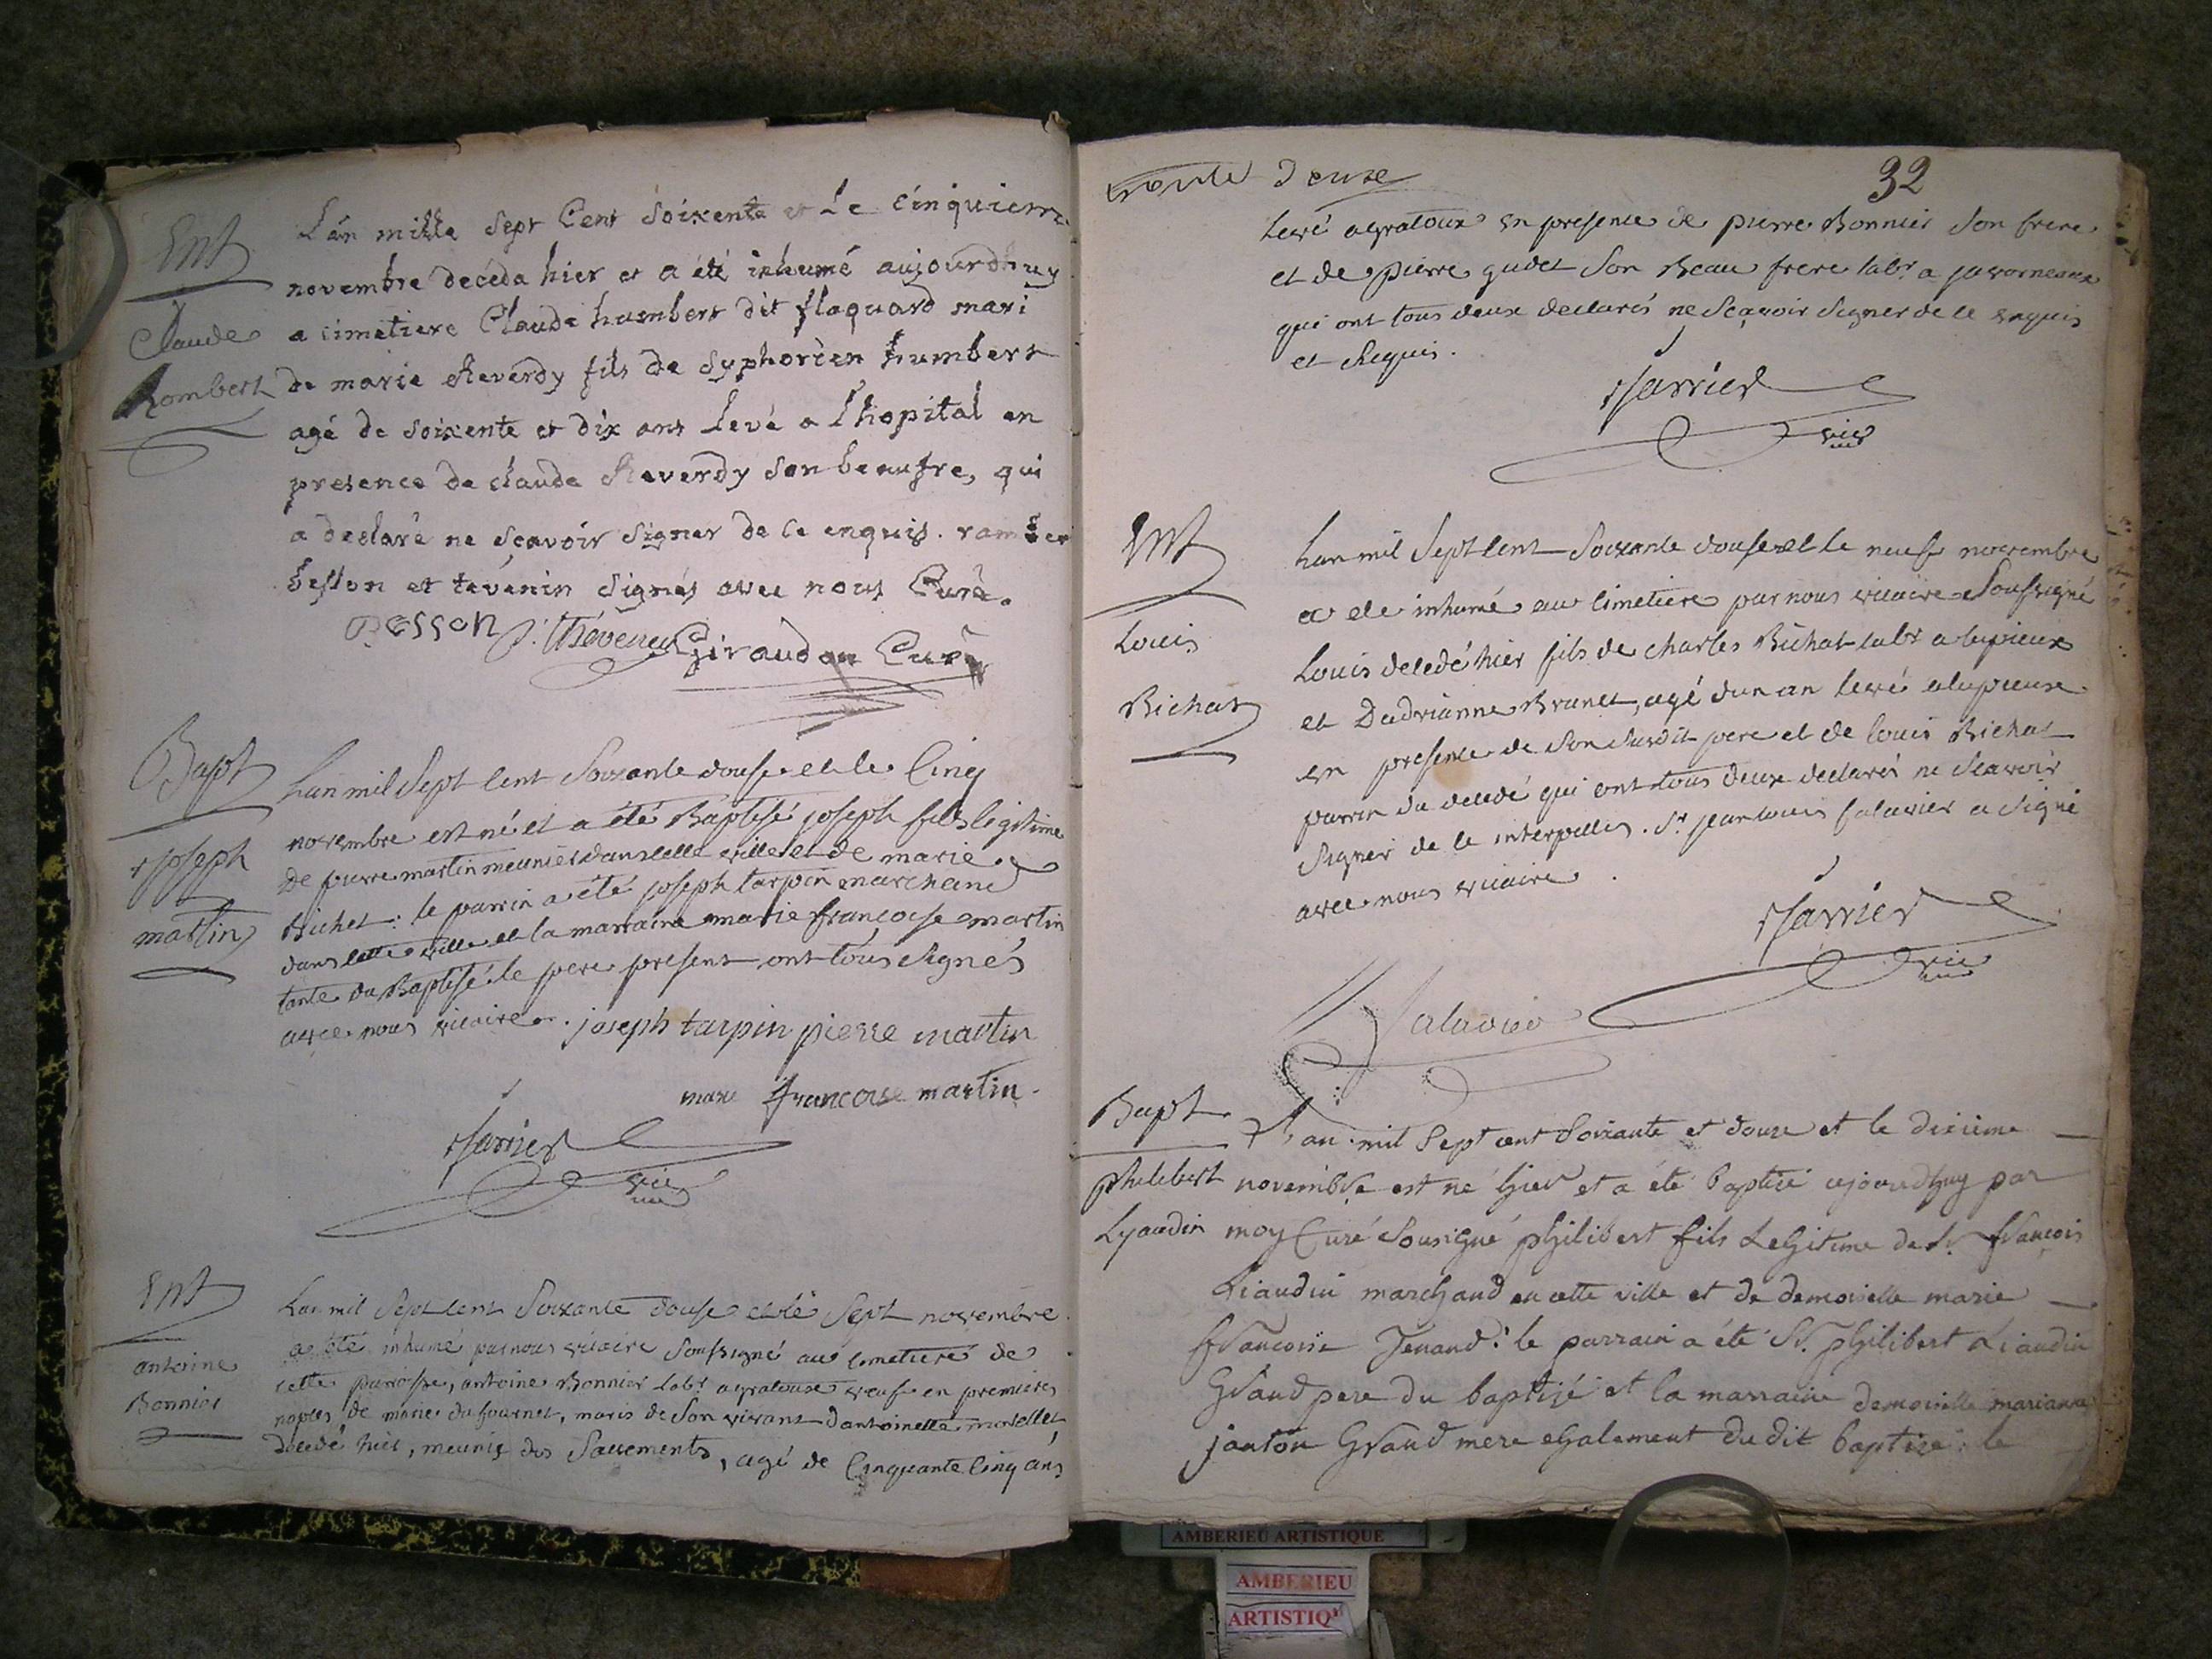 Ent
Claude
Lombert
Lán mille sept Cent soixente et Le cinquieme
novembre déceda hier et a été inhumé aujourdhuy
a cimetiere Claude humbert dit flaquard mari
de marie Reverdy fils de Syphorien humbert
agé de soixente et dix ans levé a lhopital en
presence de claude Reverdy son beaufre, qui
a declaré ne sçavoir signer de ce enquis.
besson et tévenin signés avec nous Curé.
Besson Thevenin Giraud Curé
Bapt
joseph
martin
Lan mil Sept Cent Soixante douse et le Cinq
novembre est né et a été Baptisé joseph fils légitime
de pierre martin meunier dans cette ville et de marie
Bichet: le parrin a été joseph tarpin marchand
dans cette ville et la marraine marie francoise martin
tante du Baptisé le pere present ont tous signés
avec nous vicaire. joseph tarpin pierre martin
marie francoise martin.
Jarrier
vic
Ent
antoine
Bonnier
Lan mil Sept Cent Soixante douse et le Sept novembre
a été inhumé par nous vicaire soussigné au cimetiere de
cette paroisse, antoine Bonnier Labr agratoux veuf en premieres
noples de marie du fournet, maris de son vivant dantoinette
décédé hier, meunis des Sacrements, agé de Cinquante Cinq ans
trente deuxe
32
levé agratoux en presence de pierre Bonnier son frere
et de pierre gudet son Beau frere labr a javorneaux
qui ont tous deux declarés ne sçavoir signer de ce enquis
et Requis.
Jarrier
vic
Ent
Louis
Bichat
Lan mil Sept Cent Soixante douse et le neuf novembre
a eté inhumé au cimetiere par nous vicaire Soussigné
Louis decedé hier fils de charles Bichat labr a lupieux
et Dadrianne Brunet, agé dun an levé alupieux
en presence de son susdit pere et de louis Bichat
parrin du decedé qui ont tous deux declarés ne scavoir
signer de ce interpellés. Sr jean louis salavier a signé
avec nous vicaire.
Jarrier
vic
Salavier
Bapt
philibert
Lyaudin
L'an mil sept cent soixante et douze et le dixieme
novembre est né hier et a été baptisé ajourdhuy par
moy Curé sousigné philibert fils Legitime de Sr françois
Liaudin marchand en cette ville et de demoiselle marie
francoise Jenand: le parrain a été Sr. philibert Liaudin
Grand pere du baptisé et la marraine demoiselle marianne
janton Grand mere egalement du dit baptisé: le
AMBERIEU ARTISTIQUE
AMBERIEU
ARTISTIQ